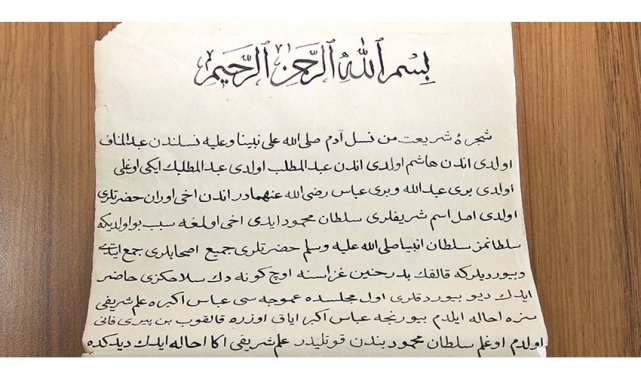 بسم الله الرحمن الرحيم
شجرۀ شريعت من نسل آدم صلى الله على نبينا وعليه نسلندن عبدالمناف
اولدى اندن هاشم اولدى اندن عبدالمطلب اولدى عبدالمطلبك ايكى اوغلى
اولدى برى عبدالله وبرى عباس رضى الله عنهمادر اندن اخى اوران حضرتلرى
اولدى اصل اسم شريفلرى سلطان محمود ايدى اخى اولمغه سبب بو اولديكه
سلطانمز سلطان انبيا صلى الله عليه وسلم حضرتلرى جميع اصحابلرى جمع ايدى
وبيورديلركه قالقك بدر حنين غزاسنه اوچ كونه دك سلاحكزى حاضر
ايدك ديو بيوردقلرى اول مجلسده عموجه سى عباس اكبره علم شريفى
سزه احاله ايلدم بيورنجه عباس اكبر اياق اوزره قالقوب بن پيرى فانى
اولدم اوغلم سلطان محمود بندن قوتليدر علم شريفى اكا احاله ايدك ديدكده